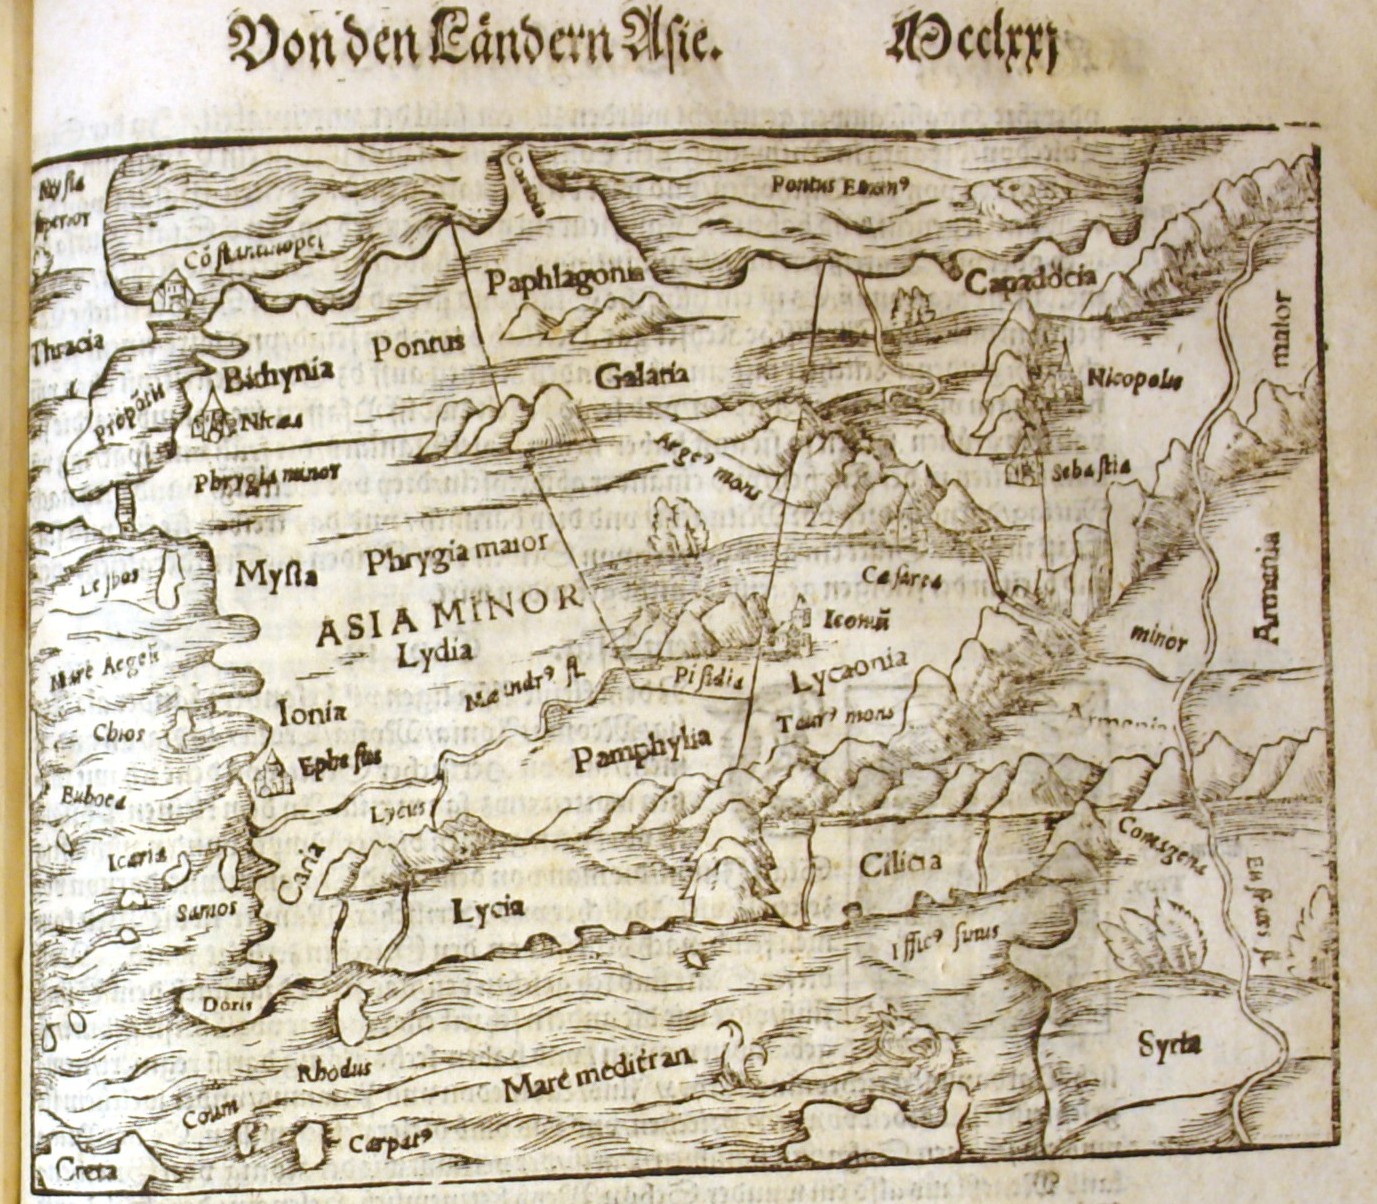 Von den Ländern Asie. Mcclxxj
Mysia
Pontus Euxin⁹
Cõstantinopel
Paphlagonia
Capadocia
Thracia
Pontus
maior
Bithynia
Galatia
Nicopolis
propõtis
Nicaa
Arge⁹ mons
Sebastia
Phrygia minor
Phrygia maior
Lesbos
Mysia
Cesarea
Armenia
ASIA MINOR
Iconiũ
minor
Lydia
Mare Aegeũ
Pisidia
Lycaonia
Mæandr⁹ fl.
Ionia
Taur⁹ mons
Armenia
Chios
Pamphylia
Ephesus
Euboea
Lycus
Comagena
Icaria
Caria
Cilicia
Eufrates fl
Samos
Lycia
Issic⁹ sinus
Doris
Syria
Rhodus
Mare mediterran.
Coum
Carpat⁹
Creta